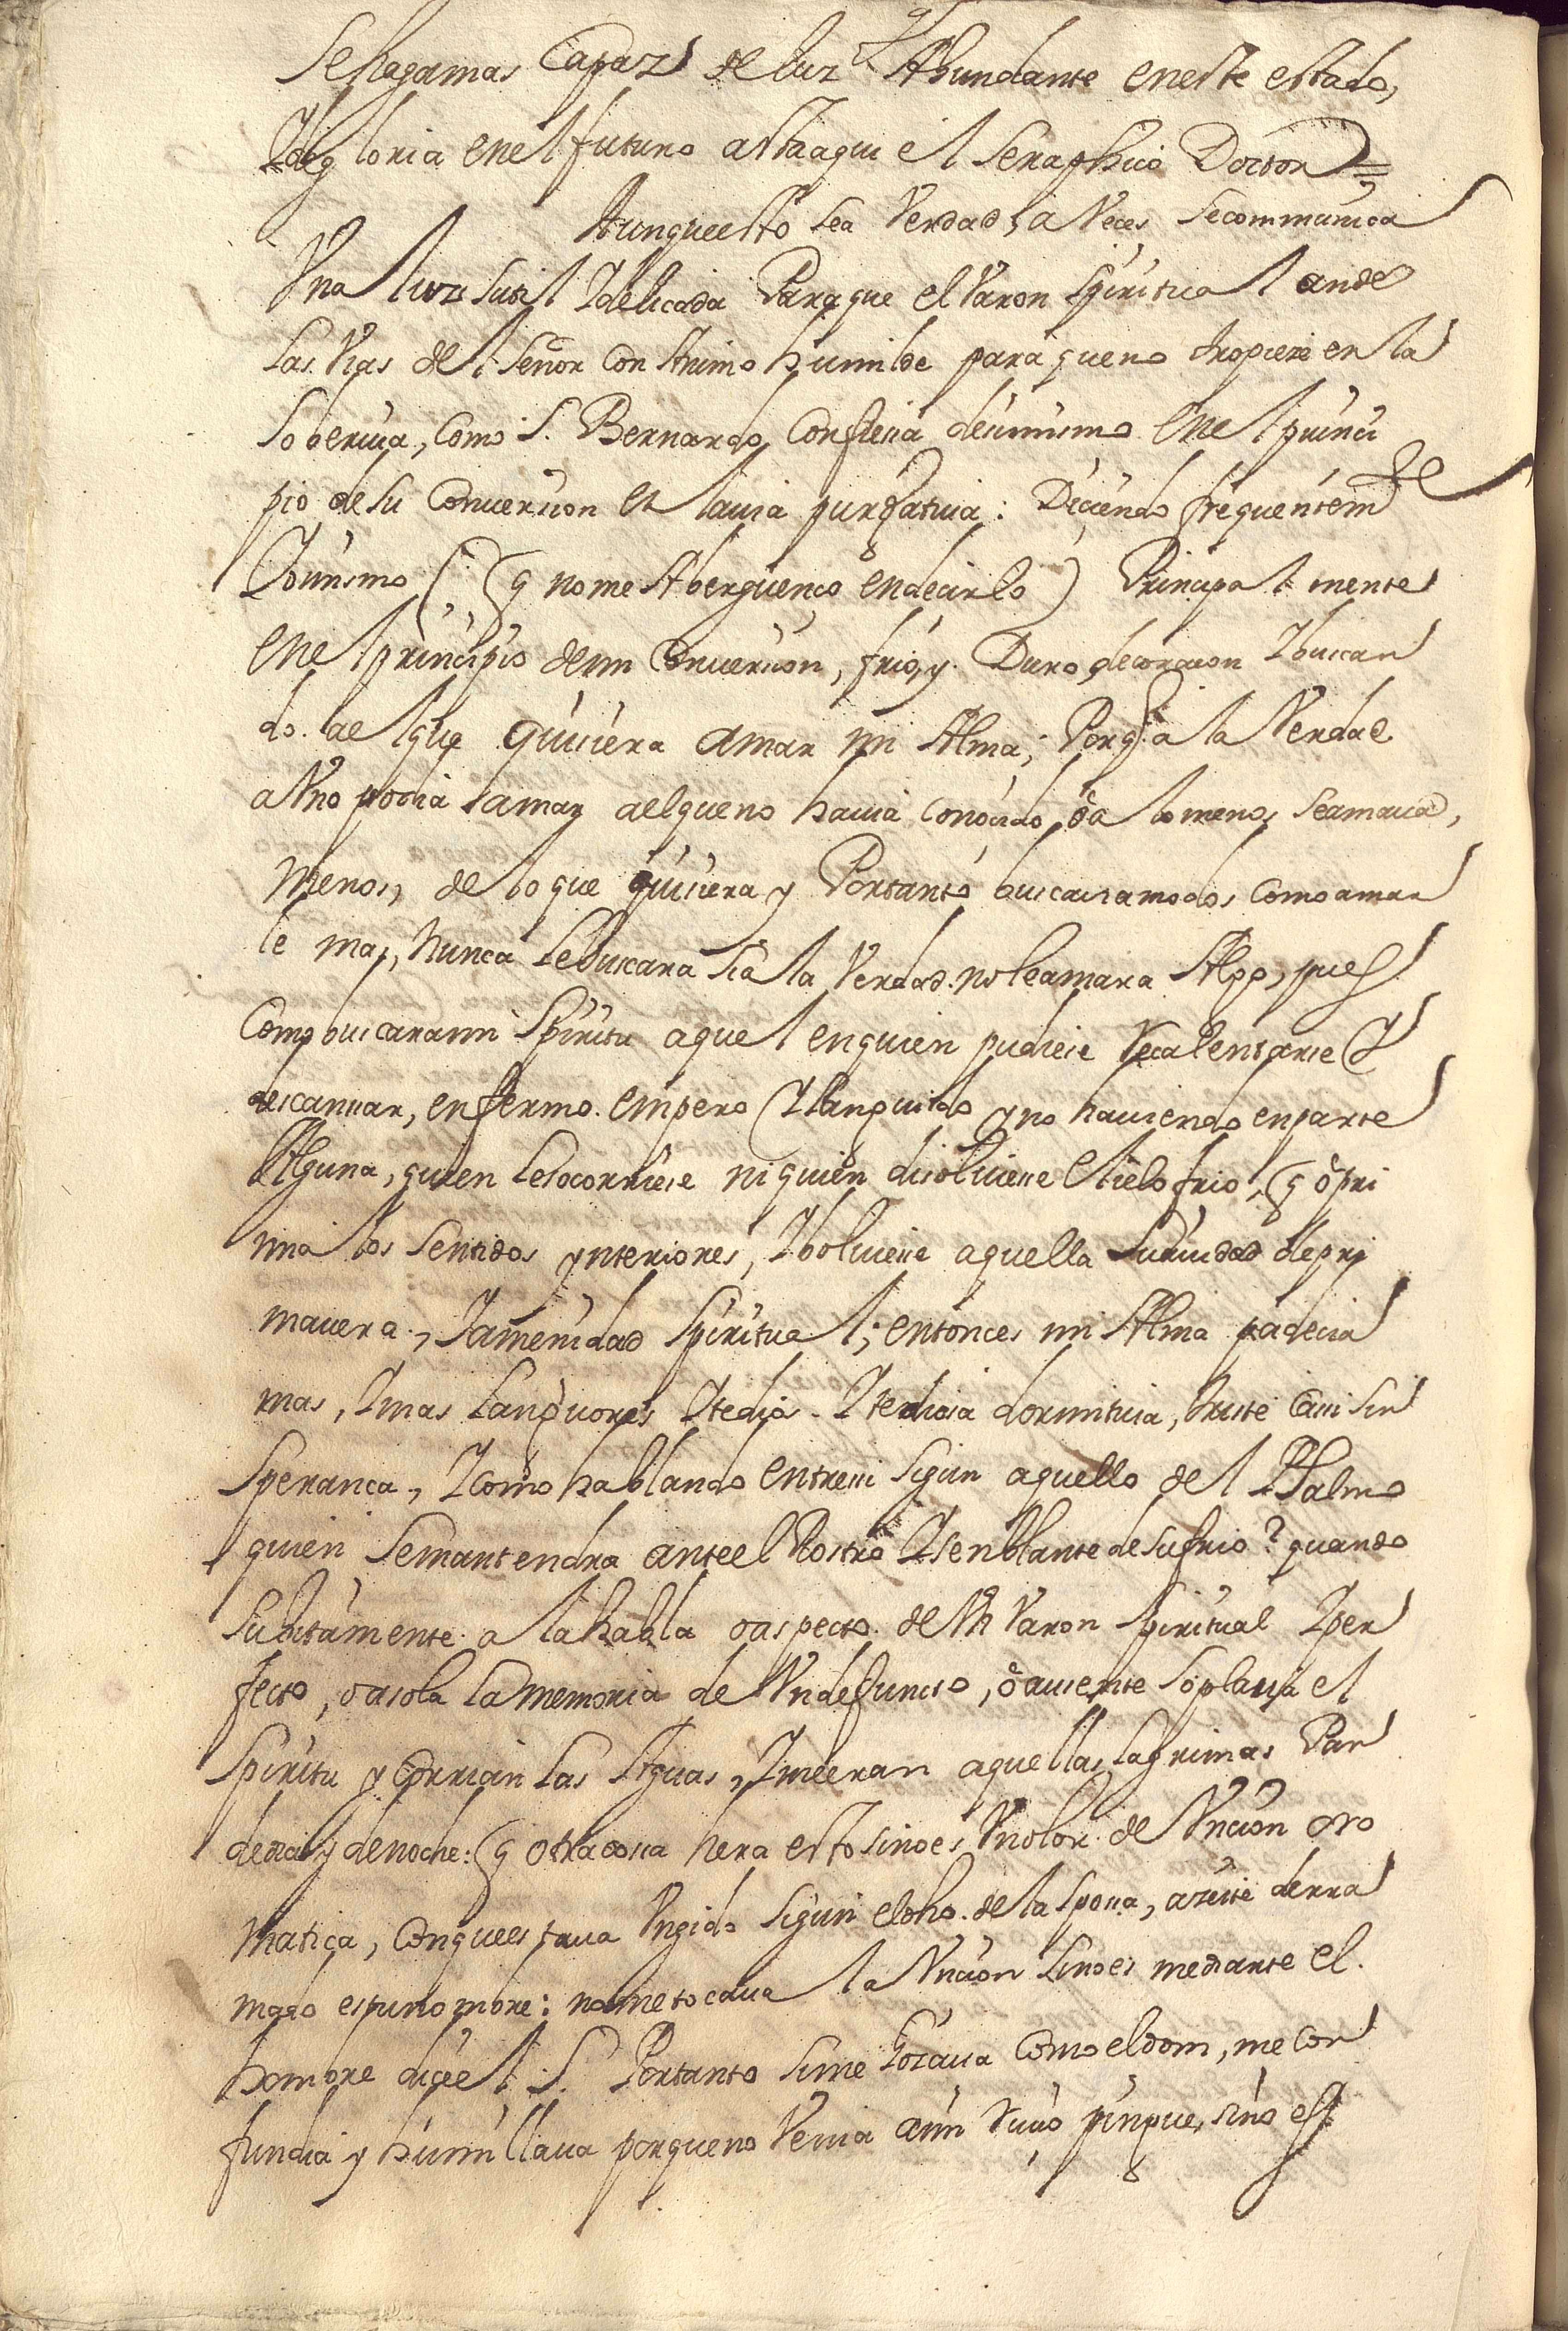 Sehagamas Capaz de luz Abundante eneste estado,
Ydegloria enel futuro astaaqui el Seraphico Doctor =
Aunqueesto sea Verdad, a Veces Secommunica
Vna luz sutil Ydelicada Paraque el Varon Spiritual ande
las Vias del Señor Con Animo humilde para queno tropiece en la
Soberuia, Como S. Bernardo Confiesa desimismo enel princi
pio desu Conuersion en lauia purgatiua: Diciendo frequentemte
Yoimismo (q nome Abergüenço endecirlo) Principalmente
enel principio demi Conuersion, frio, y Duro decoracon Ybuscan
do ael que quisiera amar mi Alma; Porq a la Verdad
aVno podia amar aelqueno hauia conocido, òa lomenos Seamaua,
menos, de loque quisiera y Portanto buscauamodos, comoamar
le mas, Nunca lebuscara Sia la Verdad noleamara Algo, pues
Como buscarami Spiritu aquel enquien pudiese Recalentarse Y
descansar, enfermo empero Ylanguido yno hauiendo enparte
Alguna, quien lesocorriese niquien disoluiese elielo frio, q òpri
mia los Sentidos ynteriores, Yboluiese aquella Suauidad depri
mauera, Yamenidad Spiritual; entonces mi Alma padecia
mas, Ymas Languores Ytedios Ytediosa dormitaua, triste Casi sin
Speranca, Ycomo hablando entresi Sigun aquello del Psalmo
quien Semantendra anteel Rostro Ysenblante desufrio? quando
Subitamente a lahabla oaspecto de Vn Varon Spiritual Yper
fecto, oasola lamemoria de Vndefuncto, òausente Soplaua el
Spiritu y Corrian las Aguas, Ymeeran aquellas lagrimas Pan
dedia y denoche: q otracosa hera esto sinoes Vnolor de Vncion aro
matiça, Conqueestaua Vngido Sigun eldho. delaSposa, aseite derra
mado estunombre: nometocaua la Vncion Sinoes mediante el
hombre dicel S. Portanto Sime Gozaua Comoeldom, me con
fundia y humillaua porqueno Venia aun Viuo pinpue, sino est